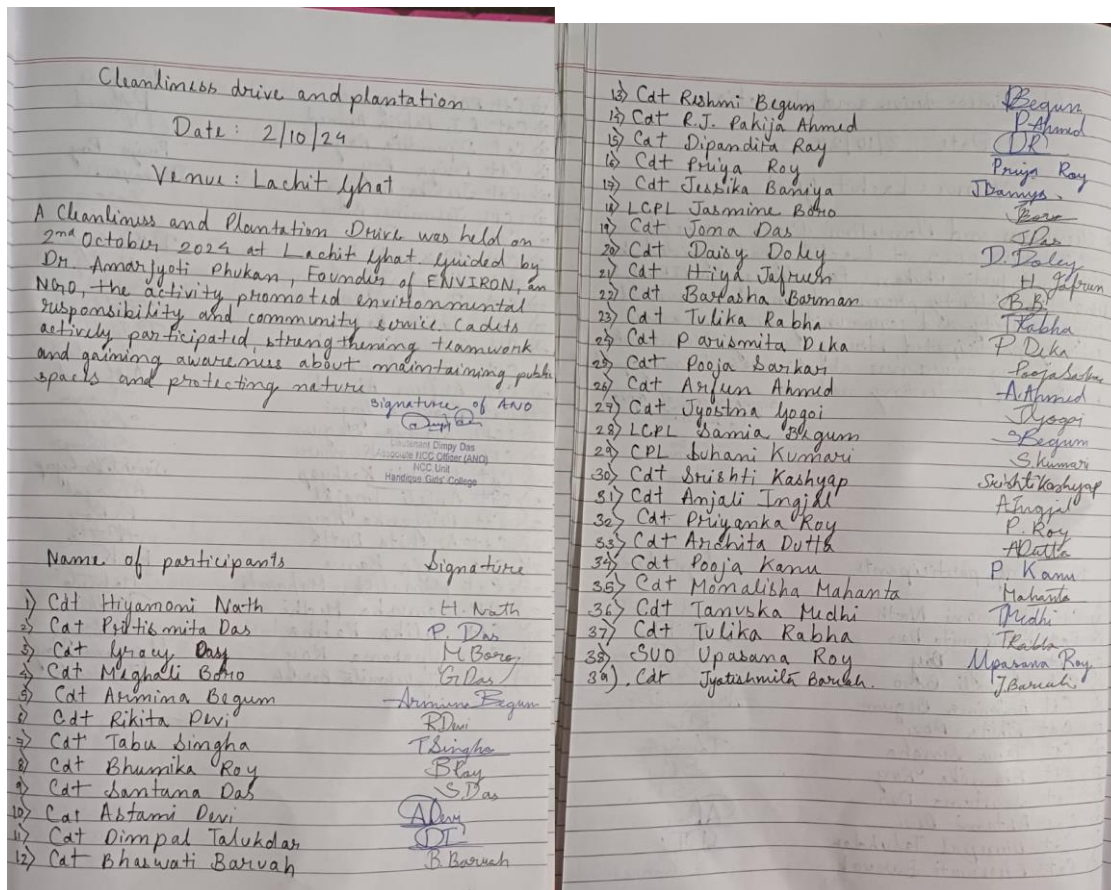 Cleanliness drive and plantation
Date : 2/10/24
Venue : Lachit Ghat
A Cleanliness and Plantation Drive was held on
2nd October 2024 at Lachit Ghat. Guided by
Dr. Amarjyoti Phukan, Founder of ENVIRON, an
NGO, the activity promoted environmental
responsibility and community service. Cadets
actively participated, strengthening teamwork
and gaining awareness about maintaining public
spaces and protecting nature.
Signature of ANO
Lieutenant Dimpy Das
Associate NCC Officer (ANO)
NCC Unit
Handique Girls' College
Name of participants Signature
1) Cdt Hiyamoni Nath H. Nath
2) Cdt Pritismita Das P. Das
3) Cdt Gracy Das M Boro
4) Cdt Meghali Boro G Das
5) Cdt Armina Begum Armina Begum
6) Cdt Rikita Devi R Devi
7) Cdt Tabu Singha T Singha
8) Cdt Bhumika Roy B Roy
9) Cdt Santana Das S. Das
10) Cdt Astami Devi A Devi
11) Cdt Dimpal Talukdar DT
12) Cdt Bhaswati Baruah B. Baruah
13) Cdt Reshmi Begum RBegum
14) Cdt R.J. Pakija Ahmed P. Ahmed
15) Cdt Dipandita Ray DR
16) Cdt Priya Roy Priya Roy
17) Cdt Jessika Baniya J Baniya.
18) LCPL Jasmine Boro J Boro
19) Cdt Joma Das J Das
20) Cdt Daisy Doley D. Doley
21) Cdt Hiya Jafrun H Jafrun
22) Cdt Barasha Barman B.B.
23) Cdt Tulika Rabha T Rabha
24) Cdt Parismita Deka P. Deka
25) Cdt Pooja Sarkar Pooja Sarkar
26) Cdt Arfun Ahmed A. Ahmed
27) Cdt Jyostna Gogoi J Gogoi
28) LCPL Samia Begum S Begum
29) CPL Suhani Kumari S. Kumari
30) Cdt Srishti Kashyap Srishti Kashyap
31) Cdt Anjali Ingjal A Ingjal
32) Cdt Priyanka Roy P. Roy
33) Cdt Archita Dutta A Dutta
34) Cdt Pooja Kanu P. Kanu
35) Cdt Momalisha Mahanta Mahanta
36) Cdt Tanuska Medhi T Medhi
37) Cdt Tulika Rabha T Rabha
38) SUO Upasana Roy Upasana Roy
39). Cdt Jyotishmita Baruah. J Baruah